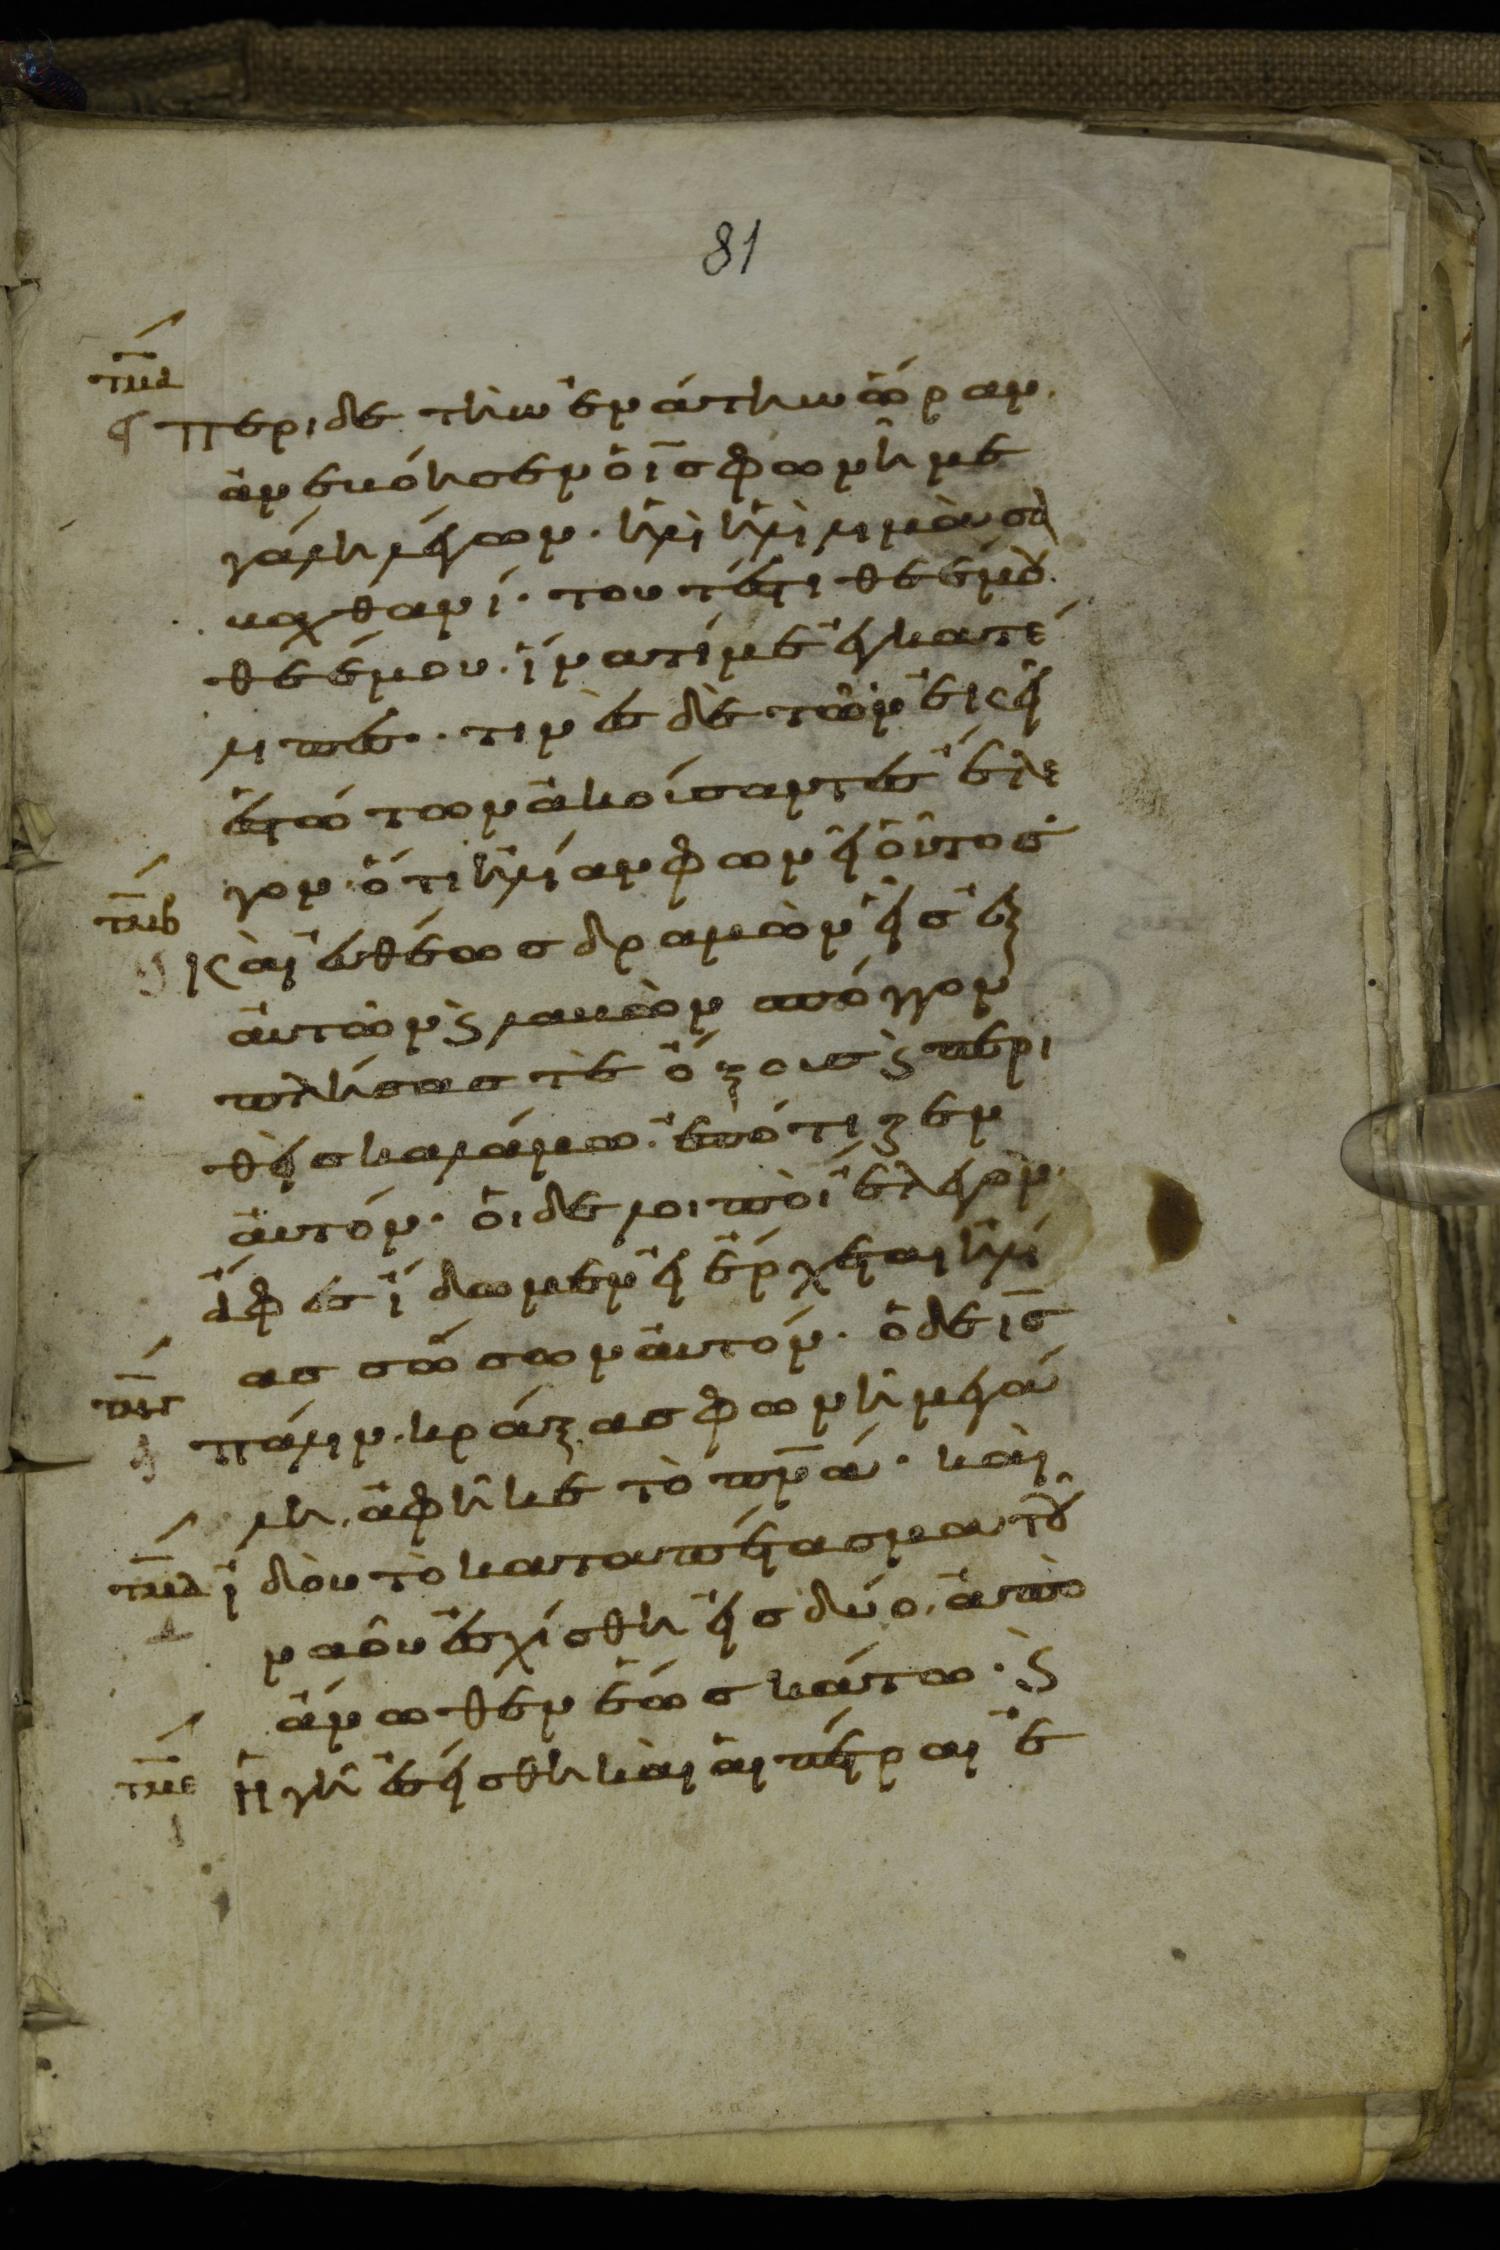 81
τμα
περι δε την ἐνάτην ὥραν.
ἀνεβόησεν ὁ ῑς φωνῆ με
γάλη λέγων. ἠλὶ ἠλὶ λιμὰ σα
βαχθανί. τουτέστι θεέ μου
θεέ μου. ἵνατί με ἐγκατέ
λιπες. τινὲς δὲ τῶν ἐκεῖ
ἑστώτων ἀκούσαντες ἔλε
γον. ὅτι ἠλίαν φωνεῖ οὗτος
τμβ
καὶ εὐθέως δραμὼν εἷς ἐξ
αὐτῶν ϗ λαβὼν σπόγγον
πλήσας τὲ ὄξους ϗ περι
θεὶς καλάμω. ἐπότιζεν
αὐτόν. ὁι δε λοιποὶ ἔλεγον.
ἄφες ἴδωμεν εἰ ἔρχεται ἠλί
ας σώσων αὐτόν. ὁ δε ῑς
τμγ
πάλιν. κράξας φωνῆ μεγά
λη, ἀφῆκε τὸ π̅ν̅α̅. καὶ
τμδ
ἰδοὺ τὸ καταπέτασμα τοῦ
ναοῦ ἐσχίσθη εἰς δύο, ἀπὸ
ἄνωθεν ἕως κάτω. ϗ
τμε
ἡ γῆ ἐσείσθη καὶ αἱ πέτραι ἐ